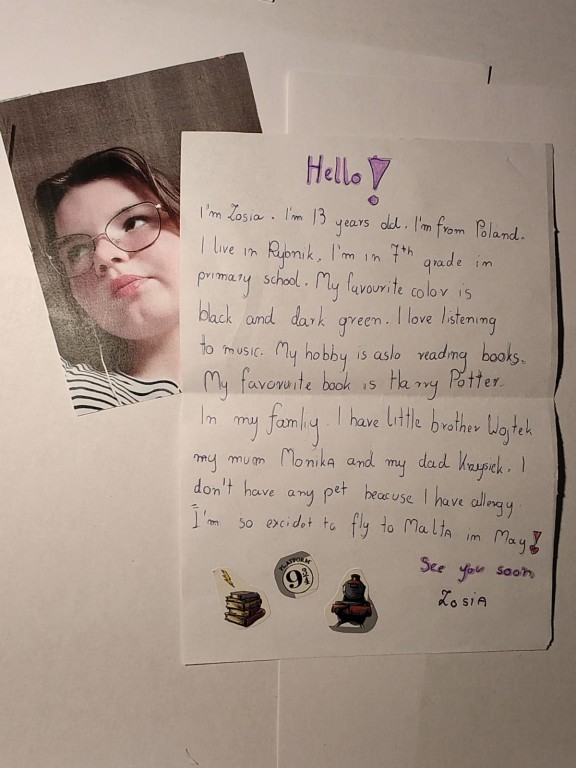 Hello!
I'm Zosia. I'm 13 years old. I'm from Poland.
I live in Rybnik, I'm in 7th grade in
primary school. My favourite color is
black and dark green. I love listening
to music. My hobby is aslo reading books.
My favorurite book is Harry Potter.
In my famliy I have little brother Wojtek
my mum Monika and my dad Krzysiek. I
don't have any pet beacuse I have allergy.
I'm so excidet to fly to Malta in May!
See you soon
Zosia
PLATFORM
9 3/4